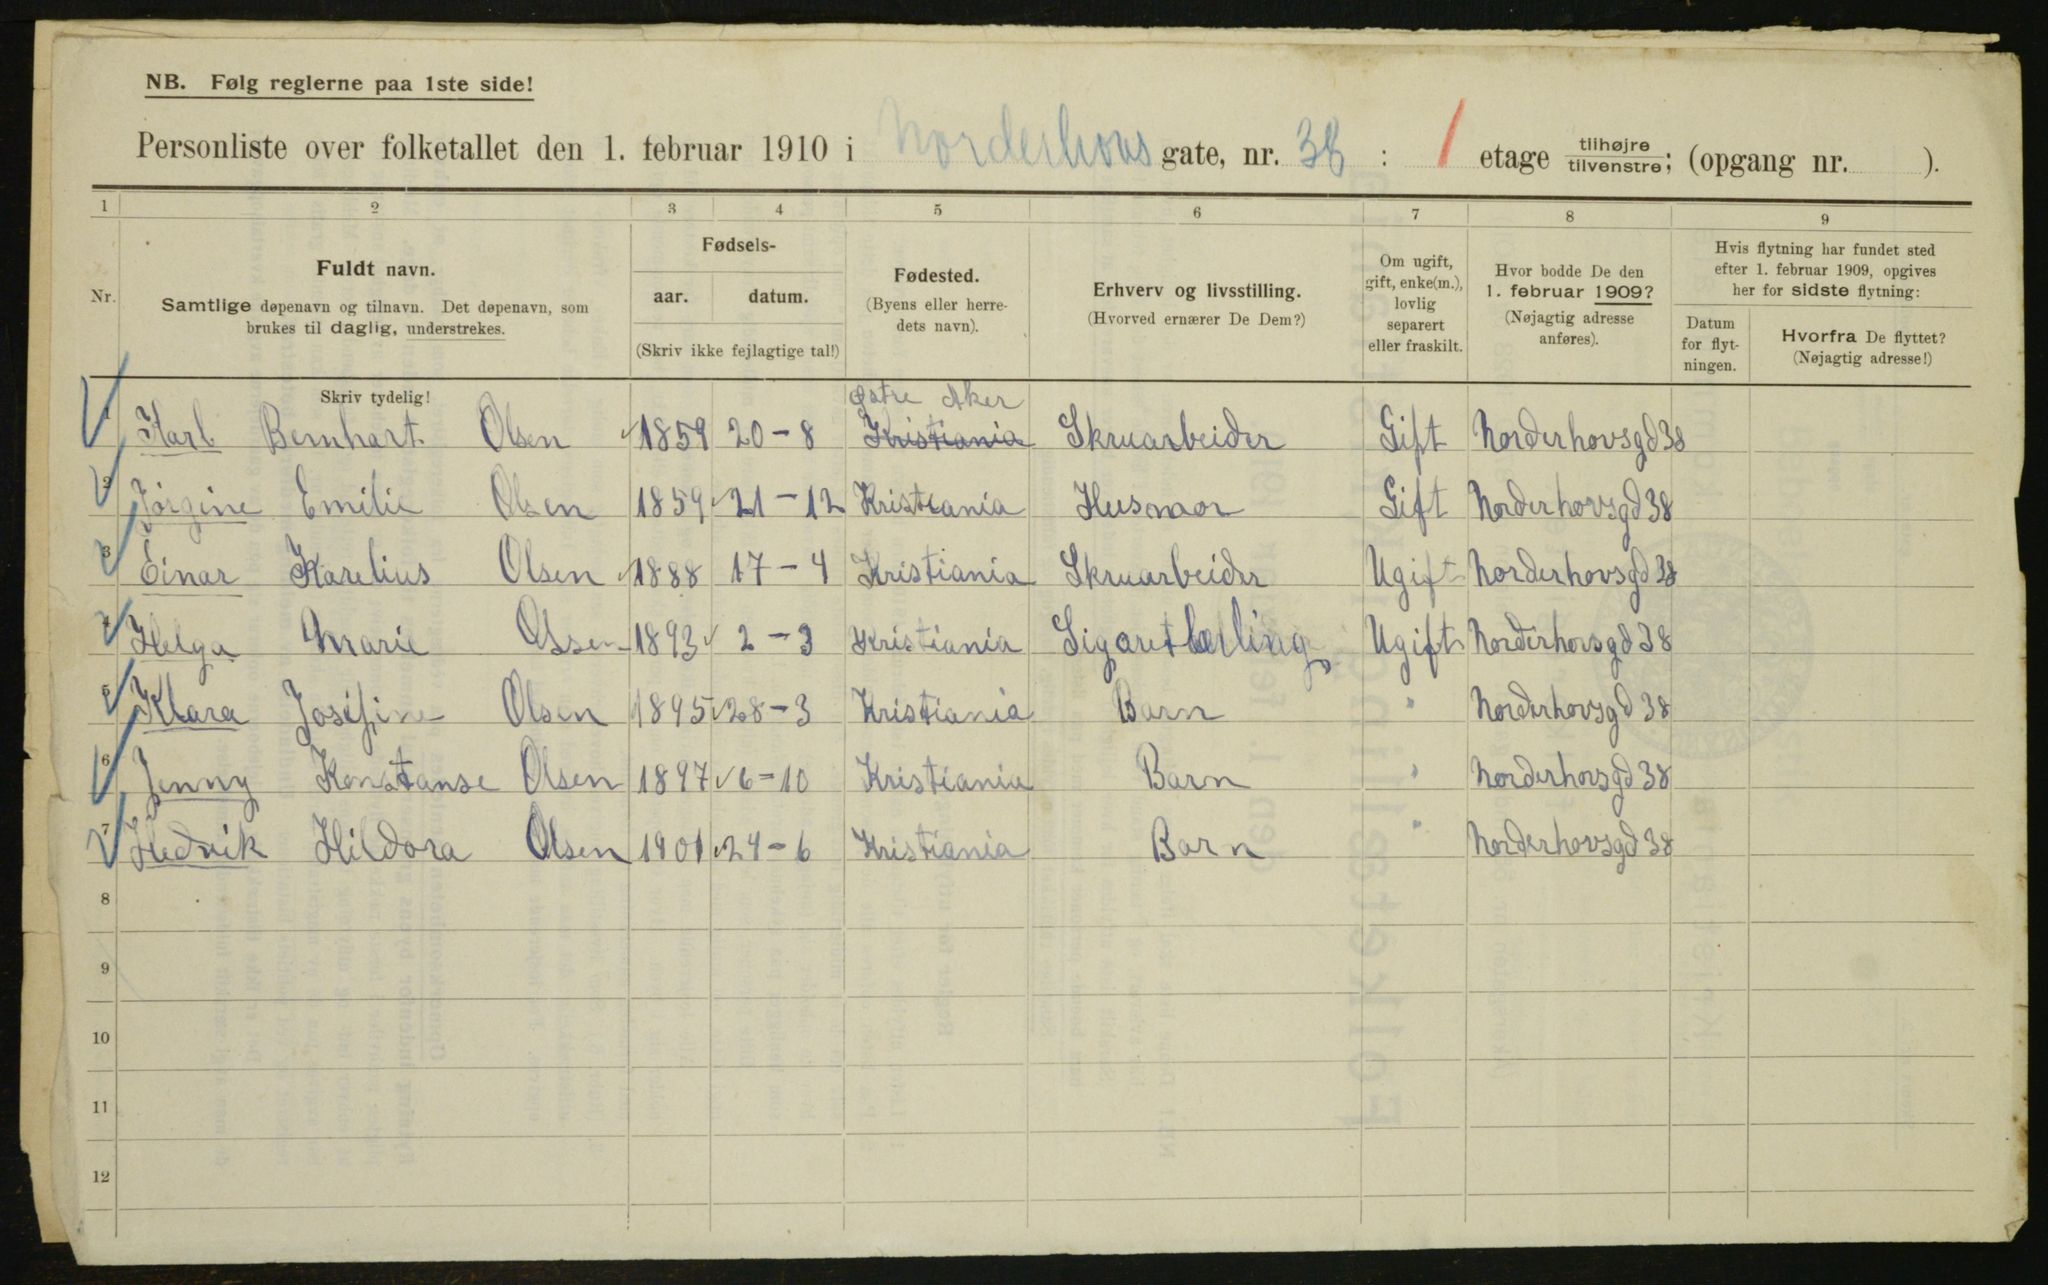 NB. Følg reglerne paa 1ste side!
Personliste over folketallet den 1. februar 1910 i Norderhovs gate, nr. 38 : 1 etage tilhøjre tilvenstre; (opgang nr. ).
1 2 3 4 5 6 7 8 9
Nr.
Fuldt navn.
Samtlige døpenavn og tilnavn. Det døpenavn, som
brukes til daglig, understrekes.
Skriv tydelig!
Fødsels-
aar. datum.
(Skriv ikke fejlagtige tal!)
Fødested.
(Byens eller herre-
dets navn).
Erhverv og livsstilling.
(Hvorved ernærer De Dem?)
Om ugift,
gift, enke(m.),
lovlig
separert
eller fraskilt.
Hvor bodde De den
1. februar 1909?
(Nøjagtig adresse
anføres).
Hvis flytning har fundet sted
efter 1. februar 1909, opgives
her for sidste flytning:
Datum
for flyt-
ningen.
Hvorfra De flyttet?
(Nøjagtig adresse!)
Østre Aker
1 Karl Bernhart Olsen 1859 20-8 Kristiania Skruarbeider Gift Norderhovsgd 38
2 Jørgine Emilie Olsen 1859 21-12 Kristiania Husmor Gift Norderhovsgd 38
3 Einar Karelius Olsen 1888 17-4 Kristiania Skruarbeider Ugift Norderhovsgd 38
4 Helga Marie Olsen 1893 2-3 Kristiania Sigaretlærling Ugift Norderhovsgd 38
5 Klara Josifine Olsen 1895 28-3 Kristiania Barn " Norderhovsgd 38
6 Jenny Konstanse Olsen 1897 6-10 Kristiania Barn " Norderhovsgd 38
7 Hedvik Hildora Olsen 1901 24-6 Kristiania Barn " Norderhovsgd 38
8
9
10
11
12